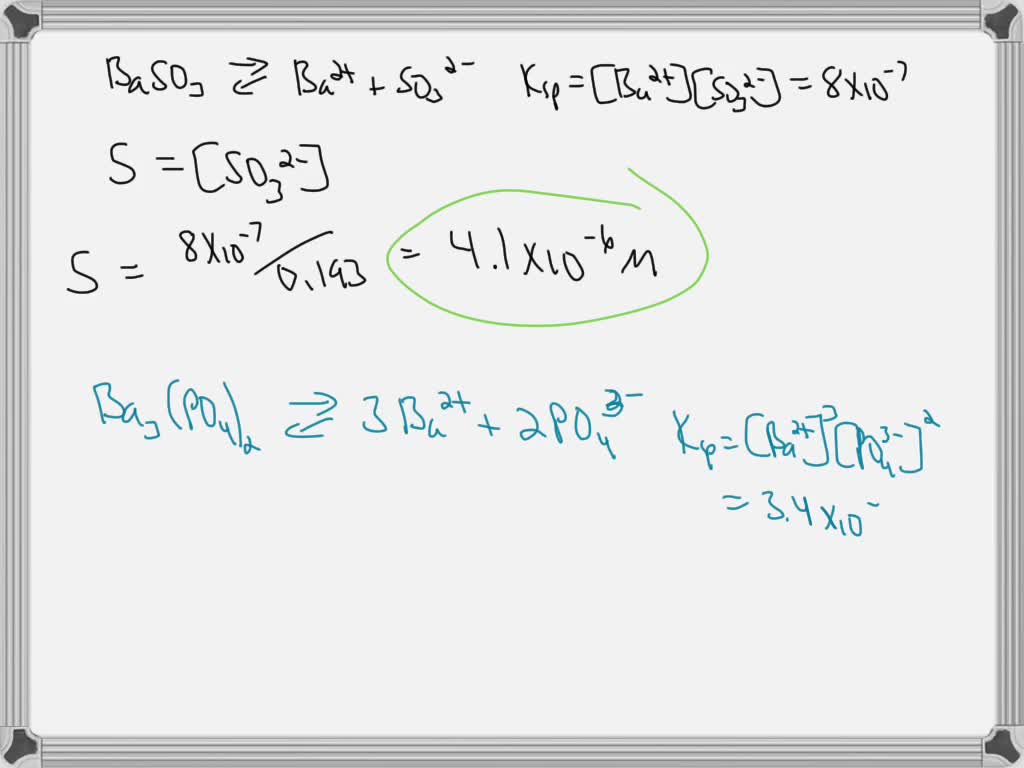 BaSO₃ ⇄ Ba²⁺ + SO₃²⁻ Ksp = [Ba²⁺][SO₃²⁻] = 8×10⁻⁷
S = [SO₃²⁻]
S = 8×10⁻⁷/0.193 = 4.1×10⁻⁶ M
Ba₃(PO₄)₂ ⇄ 3Ba²⁺ + 2PO₄³⁻ Ksp = [Ba²⁺]³[PO₄³⁻]²
= 3.4×10⁻